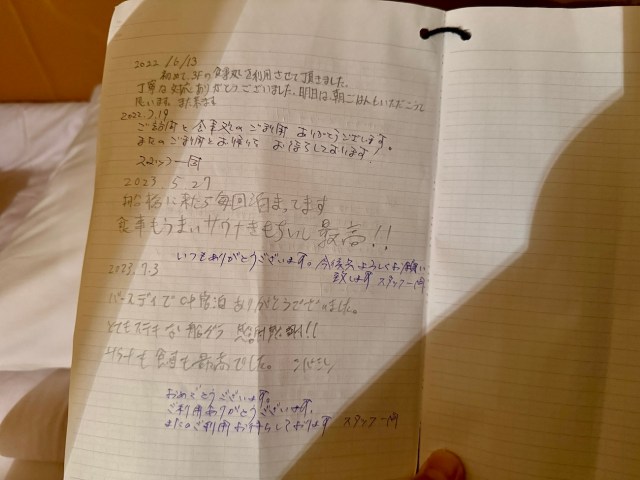 2022.6/13
初めて3Fの食事処を利用させて頂きました。
丁寧な対応ありがとうございました。明日は朝ごはんもいただこうと
思います。また来ます
2022.7.19
ご宿泊と食事処のご利用 ありがとうございます。
またのご利用をお待ち お待ちしております。
スタッフ一同
2023.5.27
船橋に来たら毎回泊まってます
食事もうまいサウナきもちいし最高!!
いつもありがとうございます。今後共よろしくお願い
致します スタッフ一同
2023.7.3
バースデイで 宿泊 ありがとうございました。
とてもステキな
サウナも食事も最高でした。
おめでとうございます。
ご利用ありがとうございます。
またのご利用お待ちしております スタッフ一同